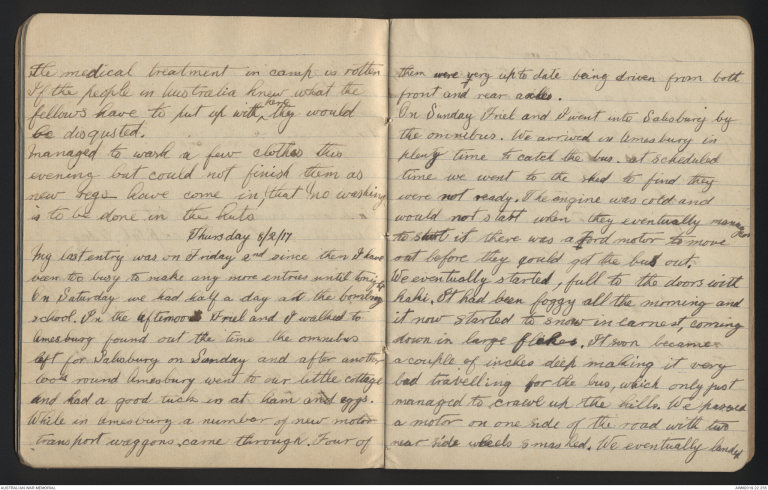 The medical treatment in camp is rotten
If the people in Australia knew what the
fellows have to put up with here they would
be disgusted.
Managed to wash a few clothes this
evening but could not finish them as
new regs have come in, that no washing
is to be done in the huts
Thursday 8/2/17
My last entry was on Friday 2nd since then I have
been too busy to make any more entries until tonight
On Saturday we had half a day at the bombing
school. In the afternoon Friel and I walked to
Amesbury found out the time the omnibus
left for Salisbury on Sunday and after another
look round Amesbury went to our little cottage
and had a good tuck in at ham and eggs.
While in Amesbury a number of new motor
transport waggons came through. Four of
them were very up to date being driven from both
front and rear axles.
On Sunday Friel and I went into Salisbury by
the omnibus. We arrived in Amesbury in
plenty time to catch the bus. At scheduled
time we went to the shed to find they
were not ready. The engine was cold and
would not start when they eventually managed
to start it there was a Ford motor to move
out before they gould get the bus out.
We eventually started, full to the doors with
kaki. It had been foggy all the morning and
it now started to snow in earnest, coming
down in large flakes. It soon became
a couple of inches deep making it very
bad travelling for the bus, which only just
managed to crawl up the hills. We passed
a motor on one side of the road with two
near side wheels smashed. We eventually landed
AUSTRALIAN WAR MEMORIAL